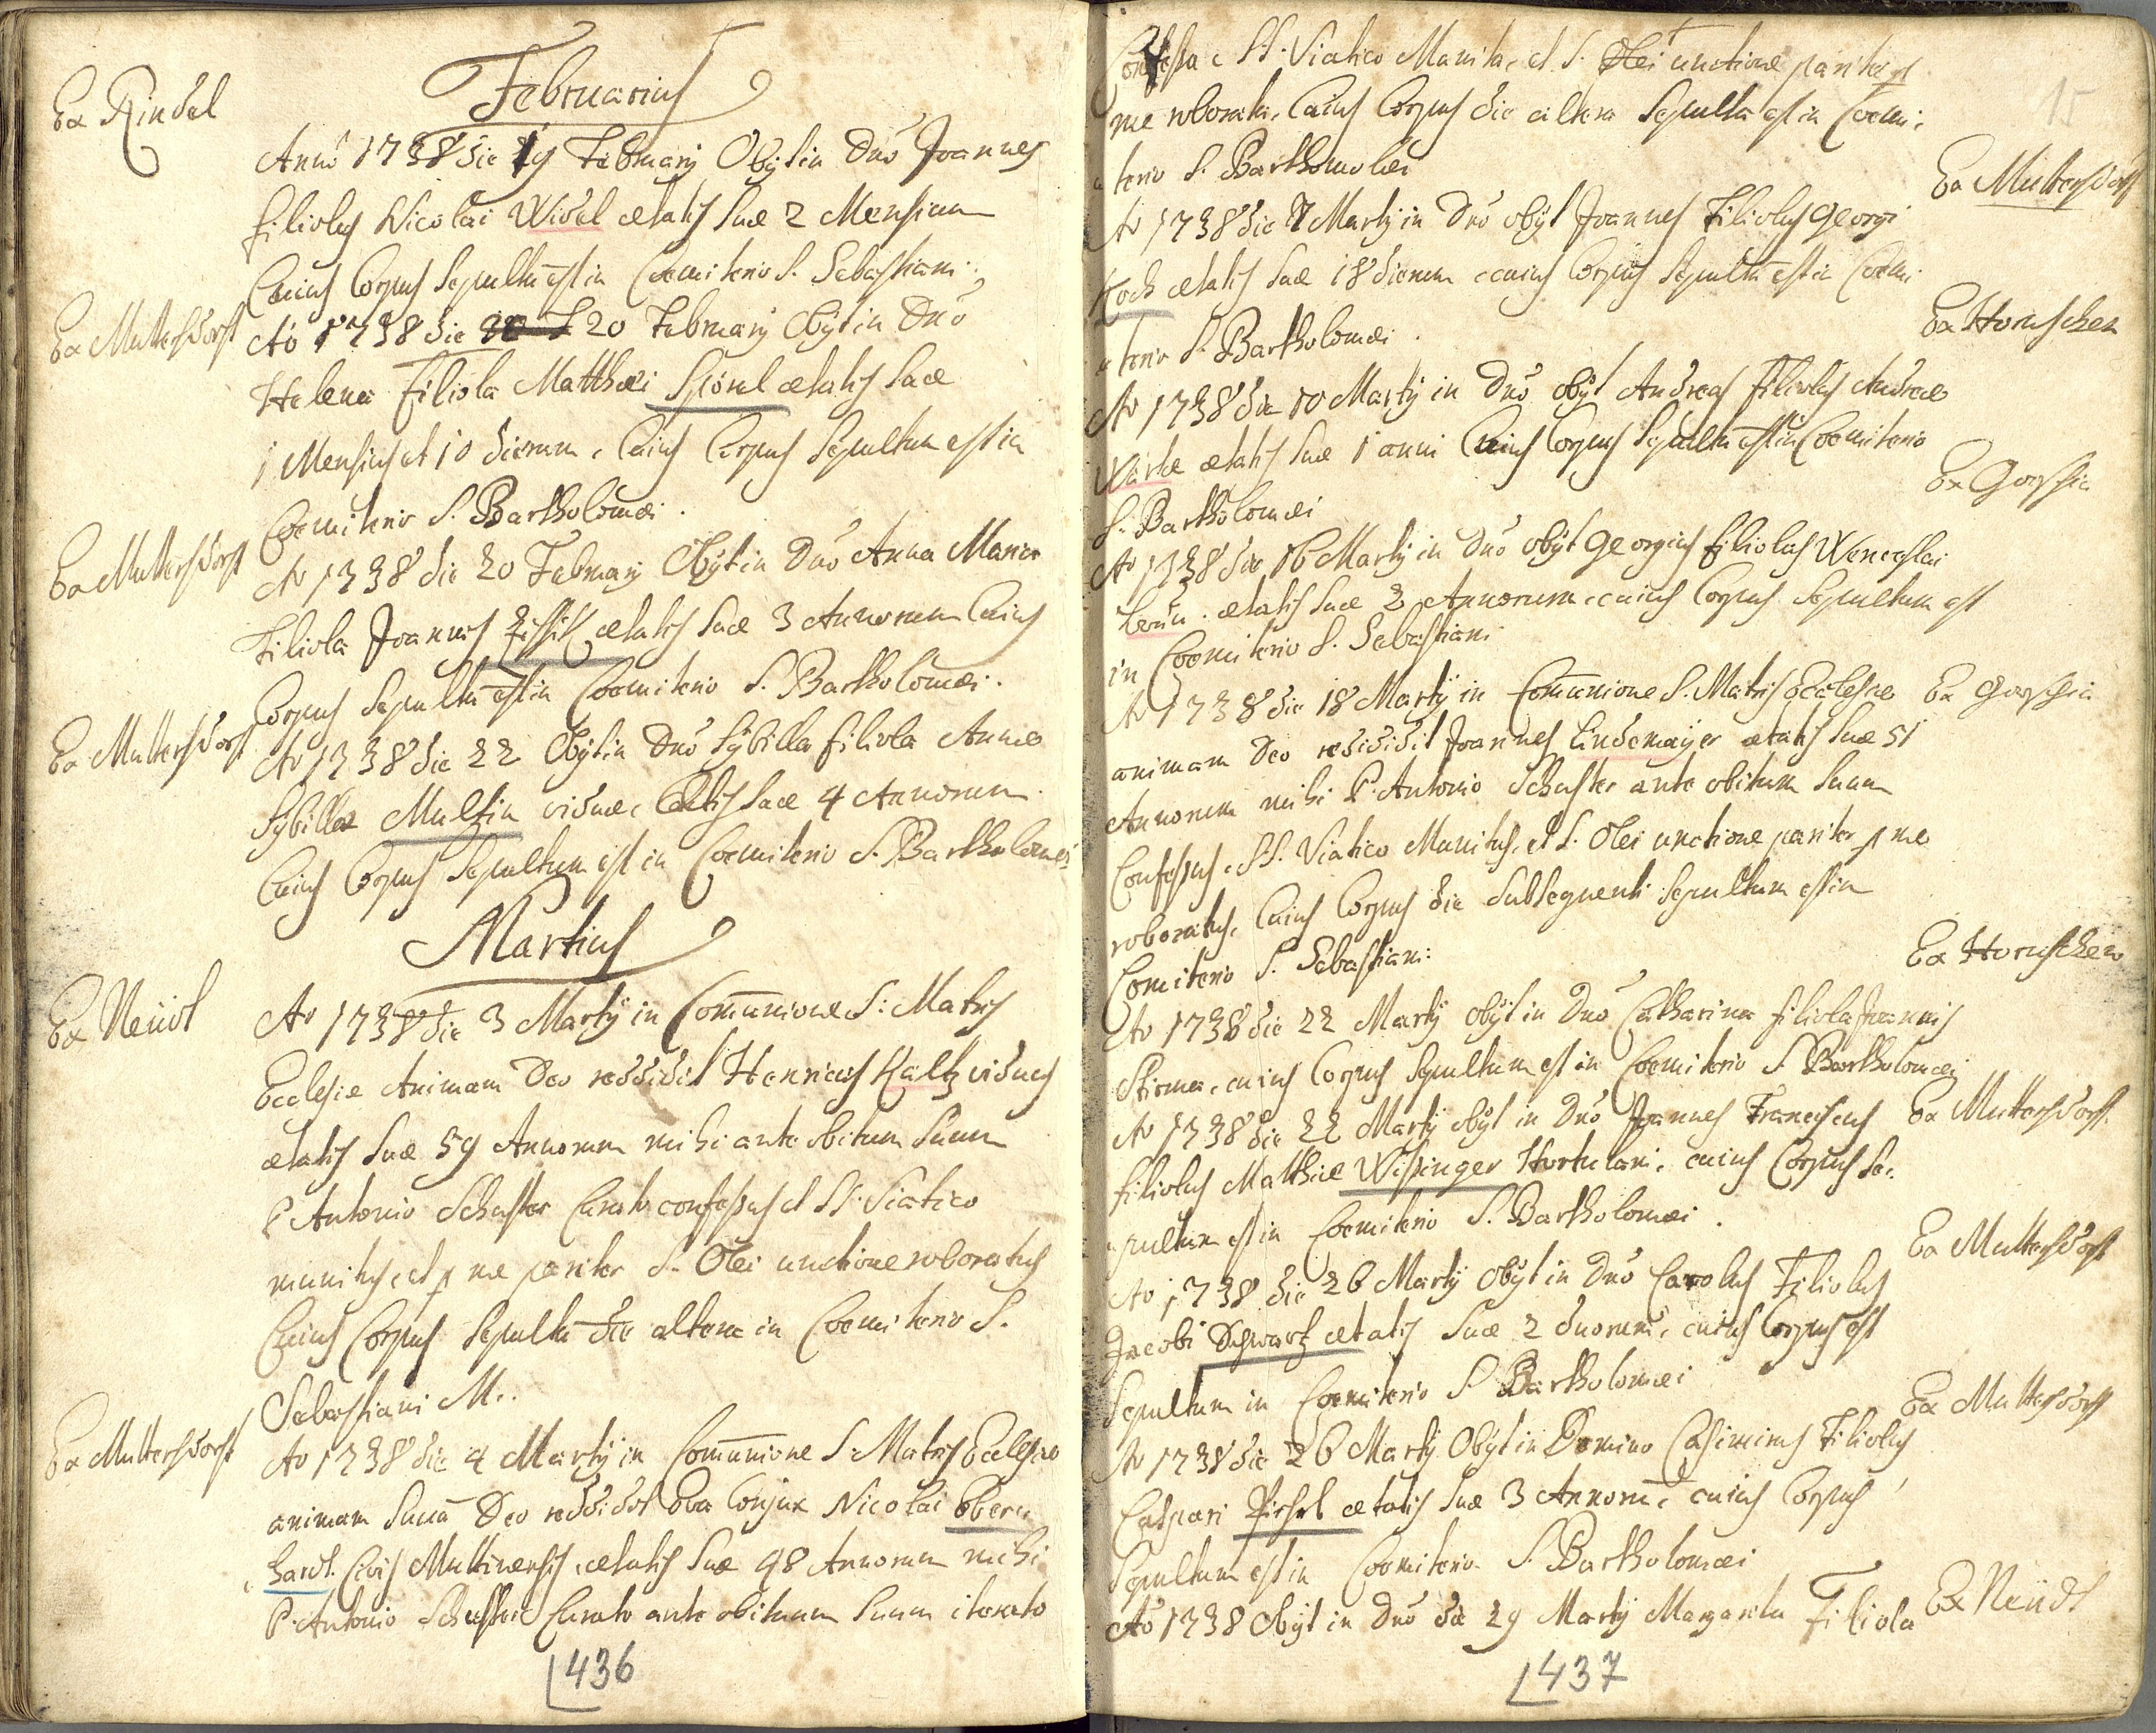 Februarius
Ex Rindel
Anno 1738 die 19 Februarij Obijt in Dno Joannes
filiolus Nicolai Widel ætatis suæ 2 Mensium
Cuius Corpus Sepultu est in Coemiterio S. Sebastiani.
Ex Muttersdorf
Ao 1738 die 20 Februarij Obijt in Dno
Helena Filiola Matthæi Spörel ætatis suæ
1 Mensis et 10 dierum, Cuius Corpus Sepultum est in
Coemiterio S. Bartholomæi.
Ex Muttersdorf
Ao 1738 die 20 Februarij Obijt in Dno Anna Maria
Filiola Joannis ætatis suæ 3 Annorum Cuius
Corpus Sepultu est in Coemiterio S. Bartholomæi.
Ex Muttersdorf
Ao 1738 die 22 Obijt in Dno Sÿbilla filiola Annæ
Sÿbillæ Multzin viduæ, ætatis suæ 4 Annorum.
Cuius Corpus Sepultum est in Coemiterio S. Bartholomæi
Martius
Ex Neüdt
Ao 1738 die 3 Martÿ in Comunione S: Matris
Ecclesiæ Animam Deo reddidit Henricus Kaltz viduus
ætatis suæ 59 Annorum mihi ante obitum suum
P Antonio Schuster Curato confessus et SS. Viatico
munitus, et p me pariter S. Olei unctione roboratus
Cuius Corpus Sepultu die altera in Coemiterio S.
Sebastiani M..
Ex Muttersdorf
Ao 1738 die 4 Martÿ in Comunione S. Matris Ecclesiæ
animam suam Deo reddidit Eva Conjux Nicolai Eber
hardt. Civis Muttinensis, ætatis suæ 48 Annorum mihi
P. Antonio Schuster Curato ante obitum suum iterato
436
15
Confessa, SS. Viatico Munita, et S. Olei unctione pariter p
me roborata, Cuius Corpus die altera Sepultu est in Coemi-
terio S. Bartholomæi
Ex Muttersdorf
Ao 1738 die 7 Martÿ in Dno obijt Joannes Filiolus Georgi
Koch ætatis suæ 18 dierum, cuius Corpus Sepultu est in Coemi-
terio S. Bartholomæi.
Ex Horuschen
Ao 1738 die 10 Martÿ in Dno obijt Andreas filiolus Andreæ
ætatis suæ 1 anni Cuius Corpus Sepultu est in Coemiterio
S. Bartholomæi
Ex Gorschin
Ao 1738 die 16 Martÿ in Dno obijt Georgius filiolus Wenceslai
ætatis suæ 2 Annorum, cuius Corpus Sepultum est
in Coemiterio S. Sebastiani
Ex Gorschin
Ao 1738 die 18 Martÿ in Comunione S. Matris Ecclesiæ
animam Deo reddidit Joannes Lindemaÿer ætatis suæ 51
Annorum mihi P. Antonio Schuster ante obitum suum
Confessus, SS. Viatico Munitus, et S. Olei unctione pariter p me
roboratus, Cuius Corpus die subsequenti sepultum est in
Comiterio S. Sebastiani.
Ex Horuschen
Ao 1738 die 22 Martÿ obÿt in Dno Catharina filiola Joannis
Stirma, cuius Corpus Sepultum est in Coemiterio S Bartholomæi
Ex Muttersdorf.
Ao 1738 die 22 Martÿ obÿt in Dno Joannes Franciscus
filiolus Matthiæ Wissinger Hortulani, cuius Corpus Se-
pultum est in Coemiterio S. Bartholomæi.
Ex Muttersdorf
Ao 1738 die 26 Martÿ Obÿt in Dno Carolus Filiolus
Jacobi Schwartz ætatis suæ 2 duorum, cuius Corpus est
Sepultum in Coemiterio S Bartholomæi
Ex Muttersdorf
Ao 1738 die 26 Martÿ Obÿt in Domino Casimirus Filiolus
Caspari Pichel ætatis suæ 3 Annorum, cuius Corpus
Sepultum est in Coemiterio S. Bartholomæi
Ex Neüdt
Ao 1738 Obÿt in Dno die 29 Martÿ Margarita Filiola
437